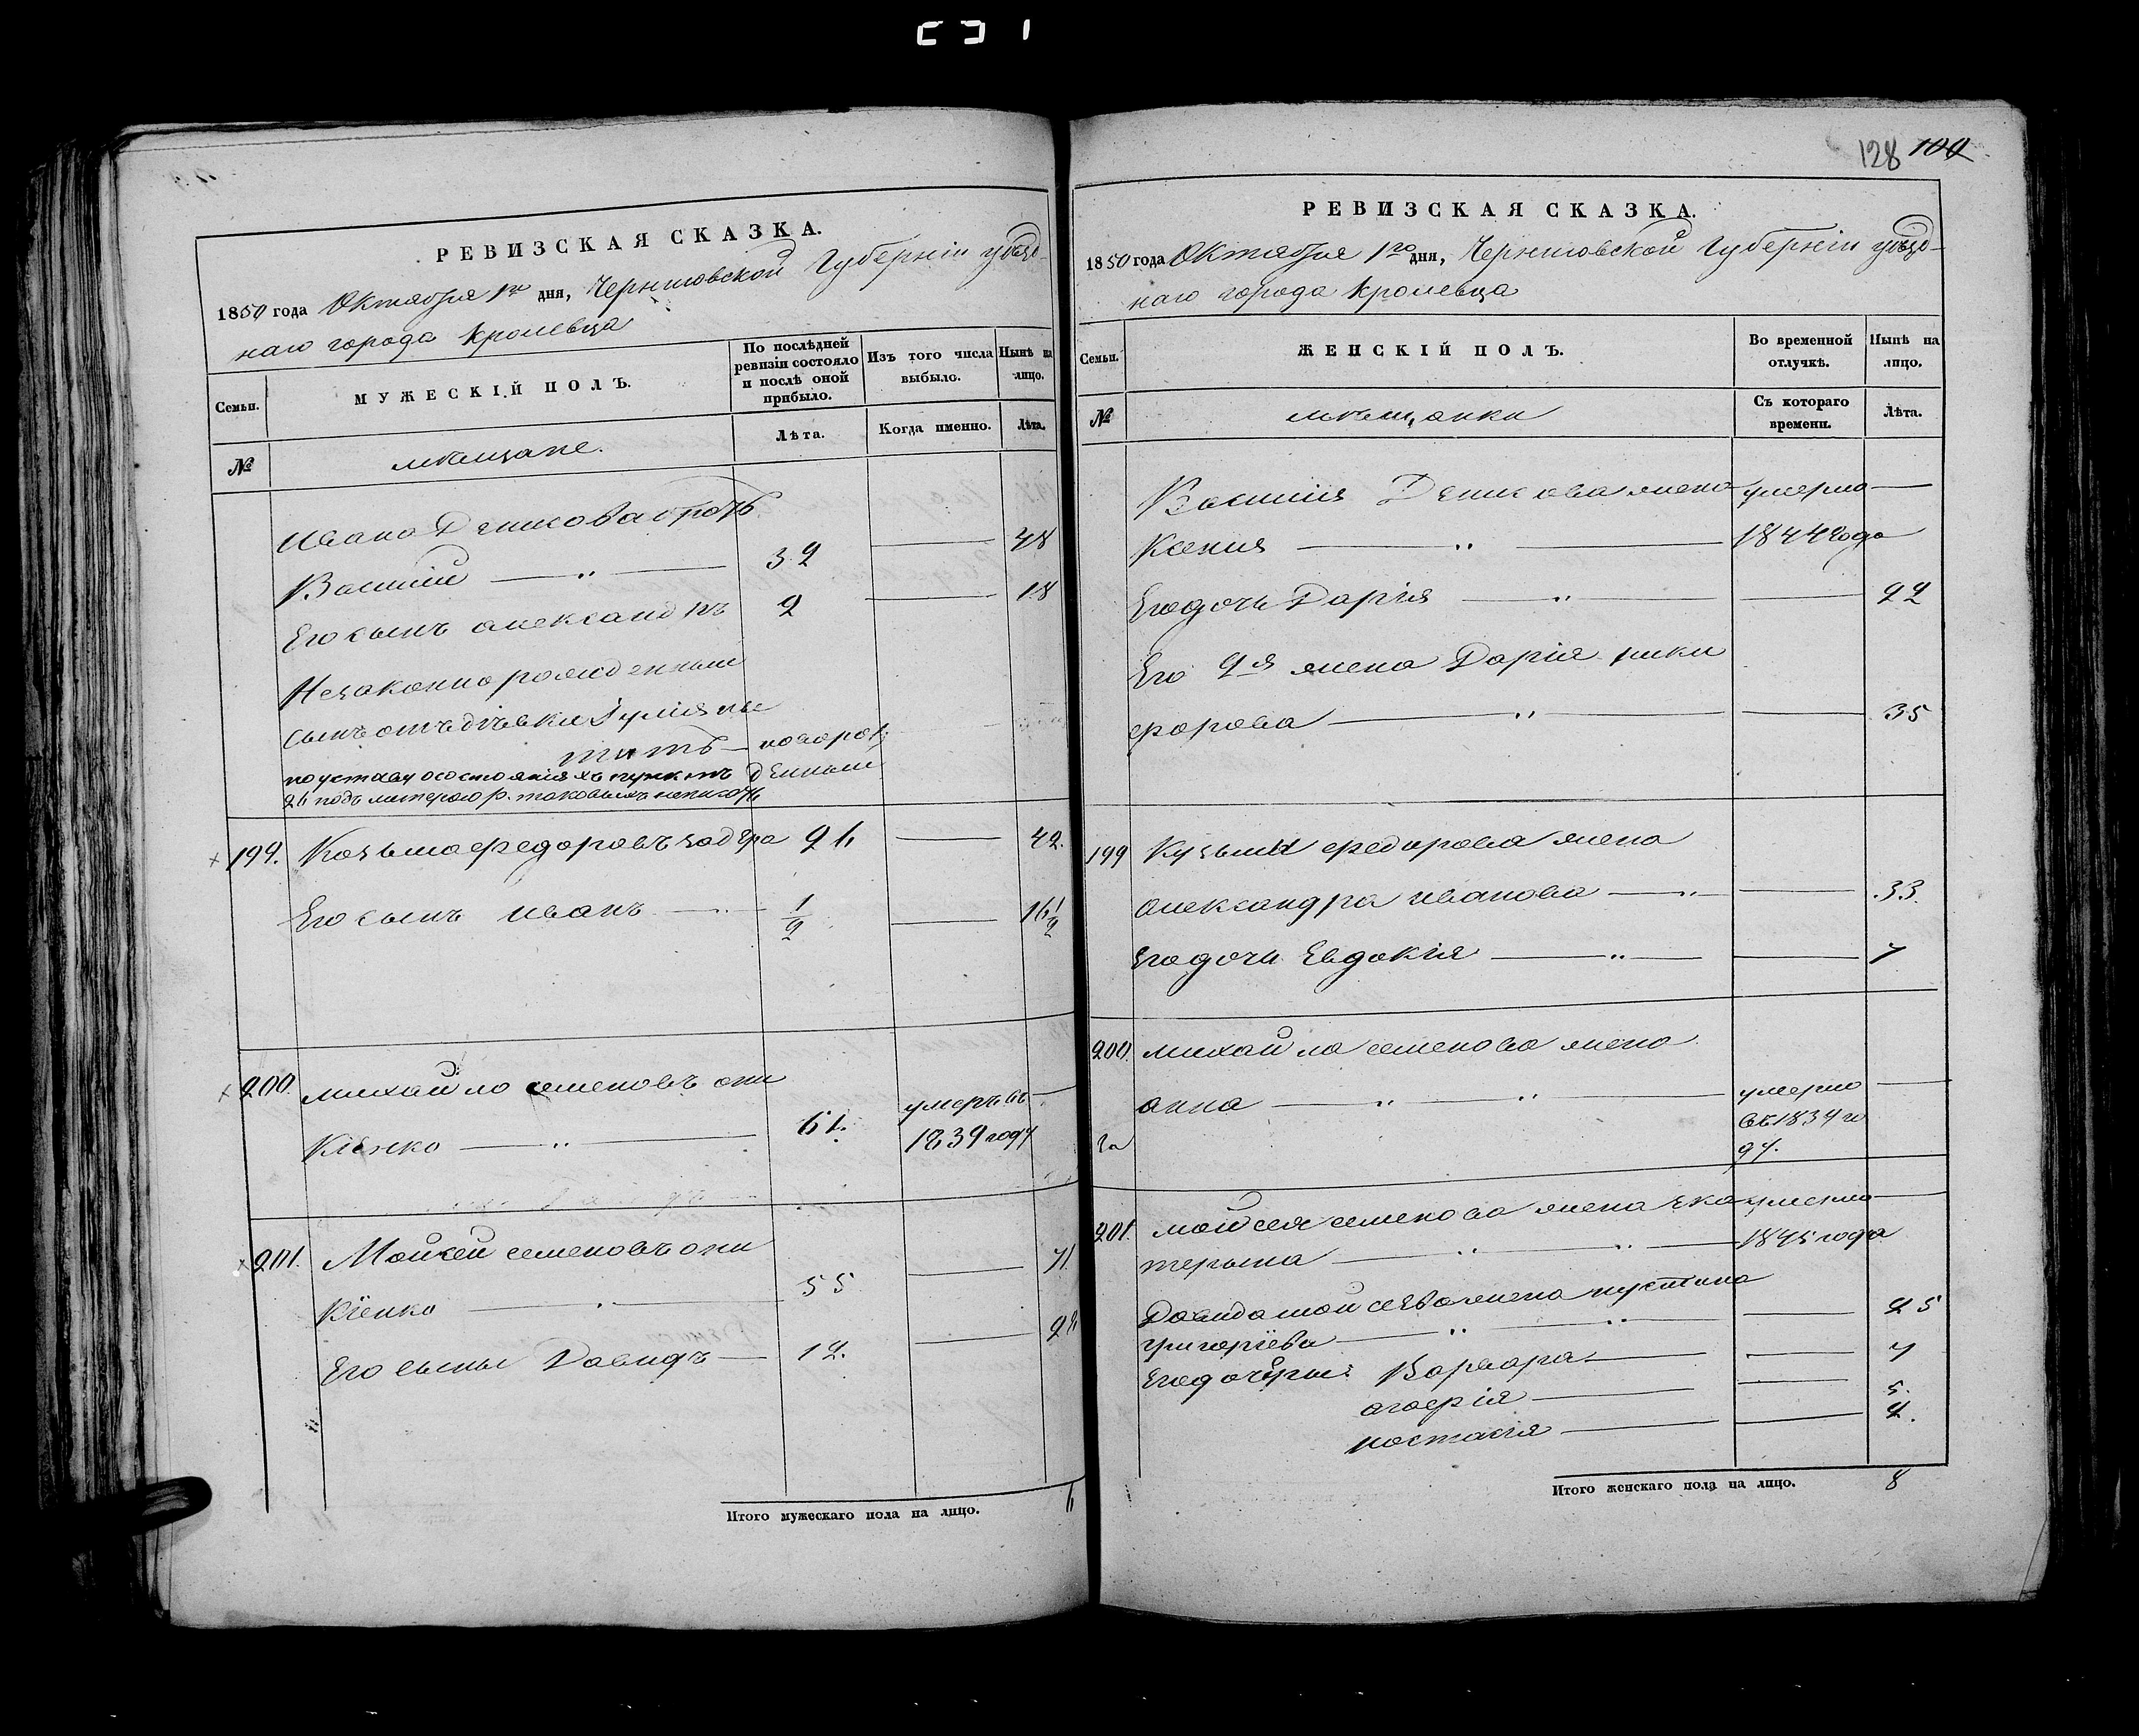 128 100
РЕВИЗСКАЯ СКАЗКА.
1850 года Октября 1го дня, Черниговской Губерніи уѣзд-
наго города Кролевца
Семьи.
МУЖЕСКІЙ ПОЛЪ.
По послѣдней ревизіи состояло и послѣ оной прибыло.
Изъ того числа выбыло.
Нынѣ на лицо.
№
мѣщане.
Лѣта.
Когда именно.
Лѣта.
Ивана Денисова братъ
Василій — " — 32 — 48
Его сынъ александръ 2 — 18
Незаконнорожденный
сынъ отъ дѣвки
титъ — новорож
по уставу о состояніяхъ пунктъ денный
26 подъ литерою р. таковыхъ
199. Козьма федоровъ 26 — 42.
Его сынъ иванъ — 1/2 — 16 1/2
200. михайло семеновъ они
кіенко — " — 61. умеръ въ —
1839 году
201. Мойсей семеновъ они
кіенко — 55 — 71
Его сыны Давидъ — 12. — 28
Итого мужескаго пола на лицо. 6
РЕВИЗСКАЯ СКАЗКА.
1850 года Октября 1го дня, Черниговской Губерніи уѣзд-
наго города Кролевца
Семьи.
ЖЕНСКІЙ ПОЛЪ.
Во временной отлучкѣ.
Нынѣ на лицо.
№
мѣщанки
Съ котораго времени.
Лѣта.
Василія Денисова жена умерла —
Ксенія — " — 1844 года
Его дочь Дарія — " — — 22
Его 2я жена Дарія ники
форова — " — — 35
199 Кузьмы федорова жена
александра иванова — " — — 33.
Его дочь Евдокія — " — — 7
200. михайла семенова жена
анна — " — " — умерла —
въ 1839 го
ду.
201. мойсея семенова жена Ека умерла —
терына — " — " — 1845 года
Давида мойсеева жена
григоріева — " — " — 25
Его дочери: Варвара — — 7
агафія — — 5.
настасія — — 2.
Итого женскаго пола на лицо. 8